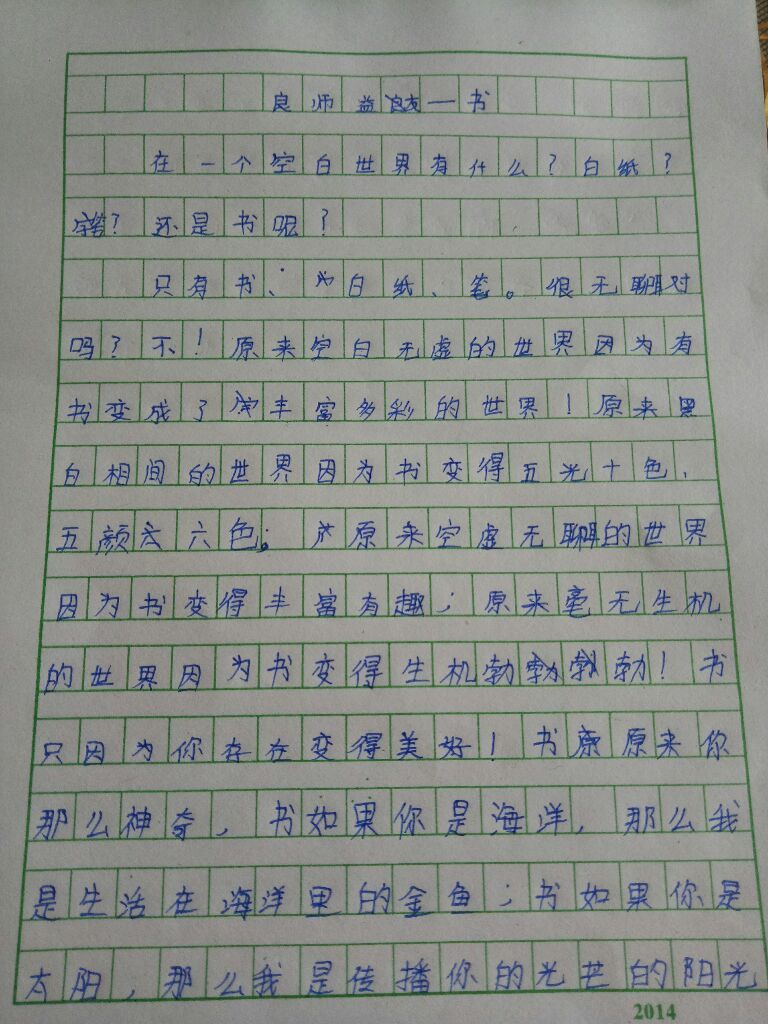 良师益友—书
在一个空白世界有什么?白纸?
笔?还是书呢?
只有书、白纸、笔。很无聊对
吗?不!原来空白无虚的世界因为有
书变成了丰富多彩的世界!原来黑
白相间的世界因为书变得五光十色、
五颜六色;原来空虚无聊的世界
因为书变得丰富有趣;原来毫无生机
的世界因为书变得生机勃勃勃勃!书
只因为你存在变得美好!书原来你
那么神奇,书如果你是海洋,那么我
是生活在海洋里的金鱼;书如果你是
太阳,那么我是传播你的光芒的阳光
2014